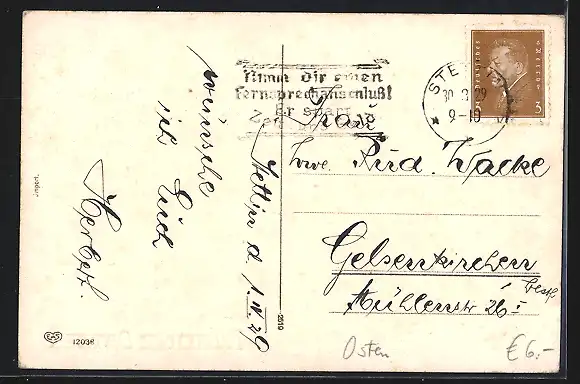 wünsche
ich Euch
Herbert.
Stettin d. 1. IV. 29
Nimm dir einen
Fernsprechanschluß!
Er spart
Zeit
STETTIN
30. 3. 29
9-10
Deutsches Reich
3 3
Frau
Wwe. Rud. Wacke
Gelsenkirchen
Mühlenstr. 26 I
Import.
12036
2519
Osten
€ 6.-